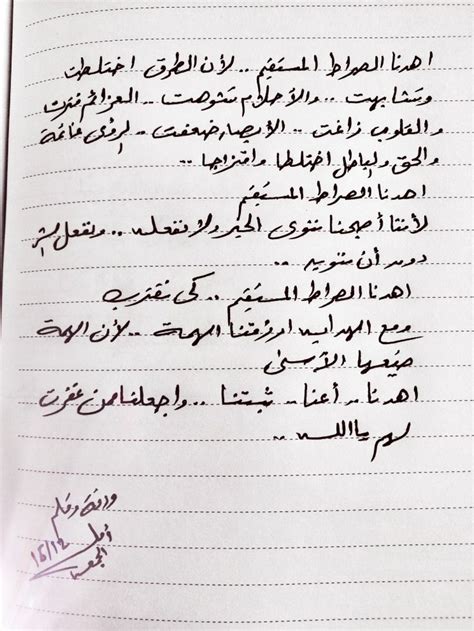 اهدنا الصراط المستقيم .. لأن الطرق اختلطت
وتشابهت .. والأحلام تشوهت .. العزائم فترت
والقلوب زاغت .. الأبصار ضعفت .. الرؤى غائمة
والحق والباطل اختلطا وامتزجا ..
اهدنا الصراط المستقيم
لأننا أصبحنا ننوي الخير ولا نفعله .. ونفعل الشر
دون أن ننويه ..
اهدنا الصراط المستقيم .. كي نقترب
ومع الهداية ارزقنا الهمة .. لأن الهمة
ضيعها الأسى
اهدنا .. أعنا .. ثبتنا .. واجعلنا ممن غفرت
لهم يا الله ..
ورقة وقلم
أمل
15/12